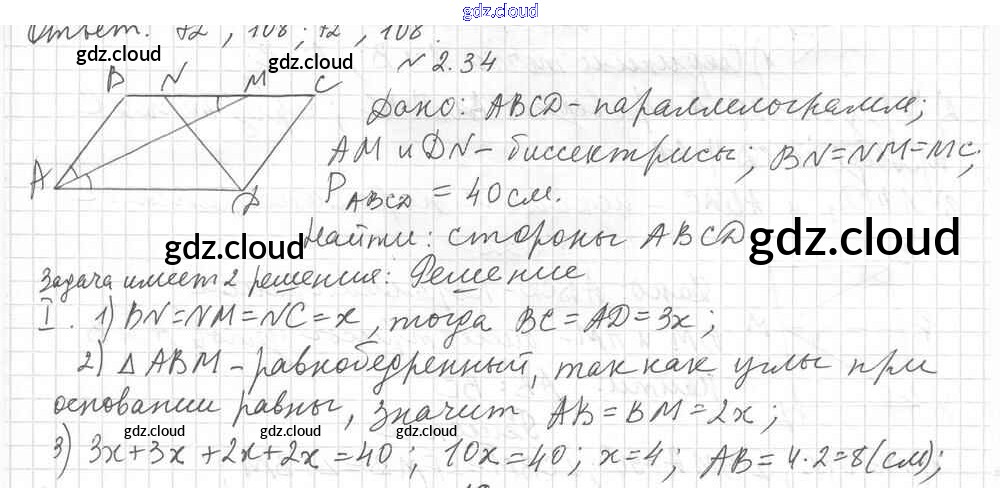 gdz.cloud
Ответ: 72°, 108°; 72°, 108°.
gdz.cloud gdz.cloud
№ 2.34
B N M C
A D
Дано: ABCD - параллелограмм;
AM и DN - биссектрисы; BN = NM = MC;
P ABCD = 40 см.
Найти: стороны ABCD
gdz.cloud gdz.cloud gdz.cloud
Задача имеет 2 решения: Решение
I. 1) BN = NM = NC = x, тогда BC = AD = 3x;
2) △ ABM - равнобедренный, так как углы при
основании равны, значит AB = BM = 2x;
gdz.cloud gdz.cloud gdz.cloud gdz.cloud
3) 3x + 3x + 2x + 2x = 40; 10x = 40; x = 4; AB = 4 · 2 = 8 (см);